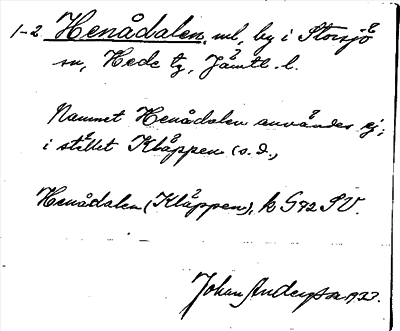 1-2 Henådalen, ml, by i Storsjö
sn, Hede tg, Jämtl. l.
Namnet Henådalen användes ej;
i stället Klåppen (s.d.,
Henådalen (Klåppen), k G 72 SV.
Johan Anderson 1933.